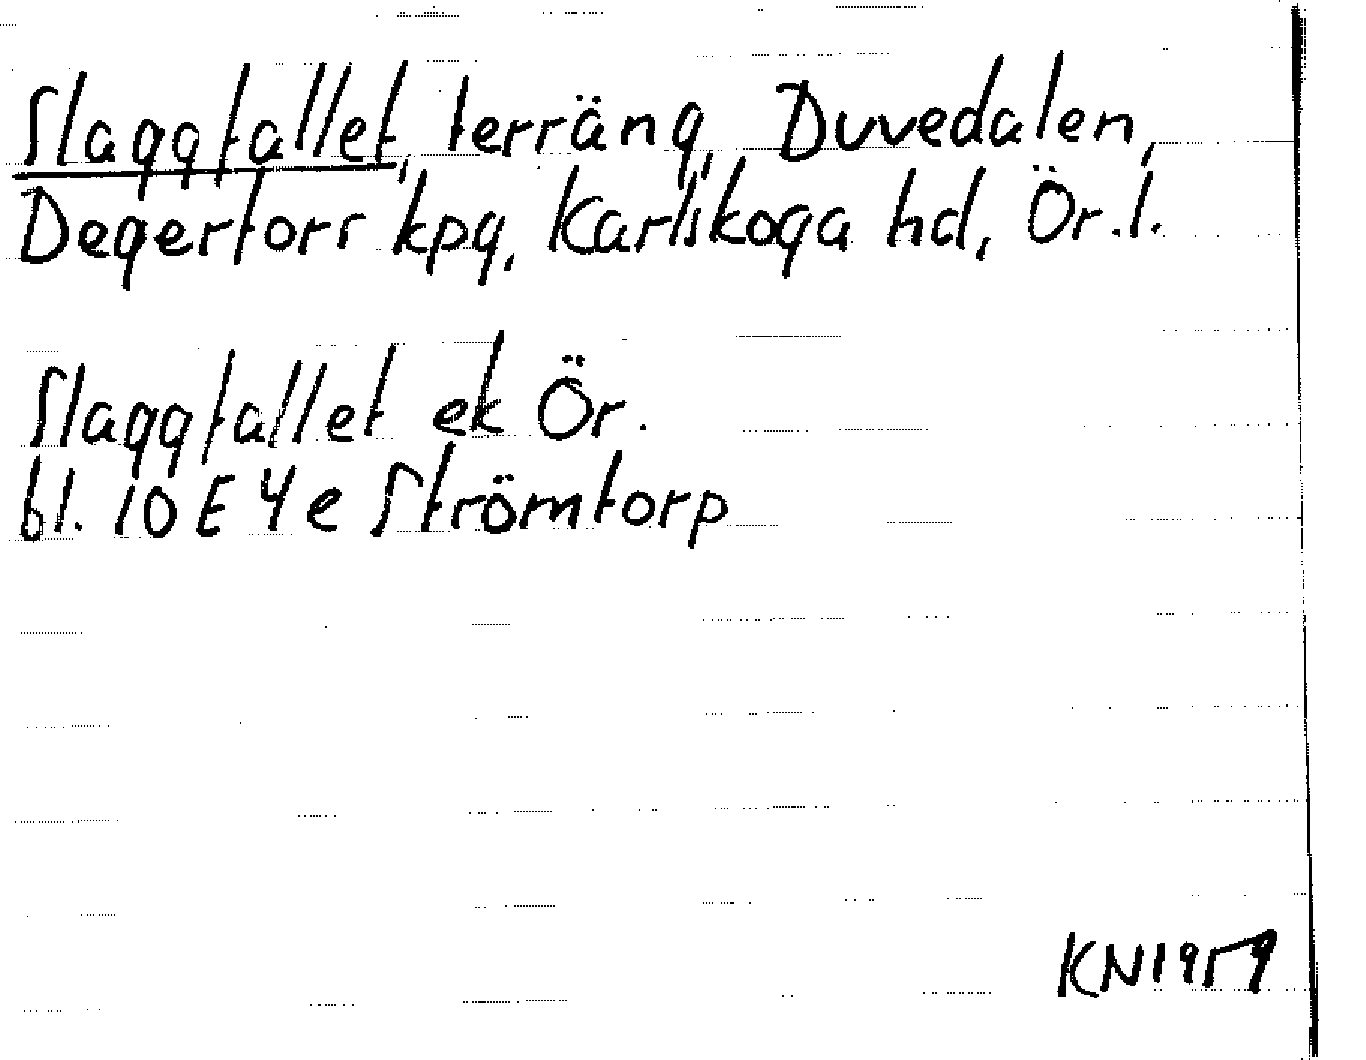 Slaggfallet, terräng, Duvedalen,
Degerfors kpg, Karlskoga hd, Ör.l.
Slaggfallet ek Ör.
bl. 10 E 4e Strömtorp
KN1959